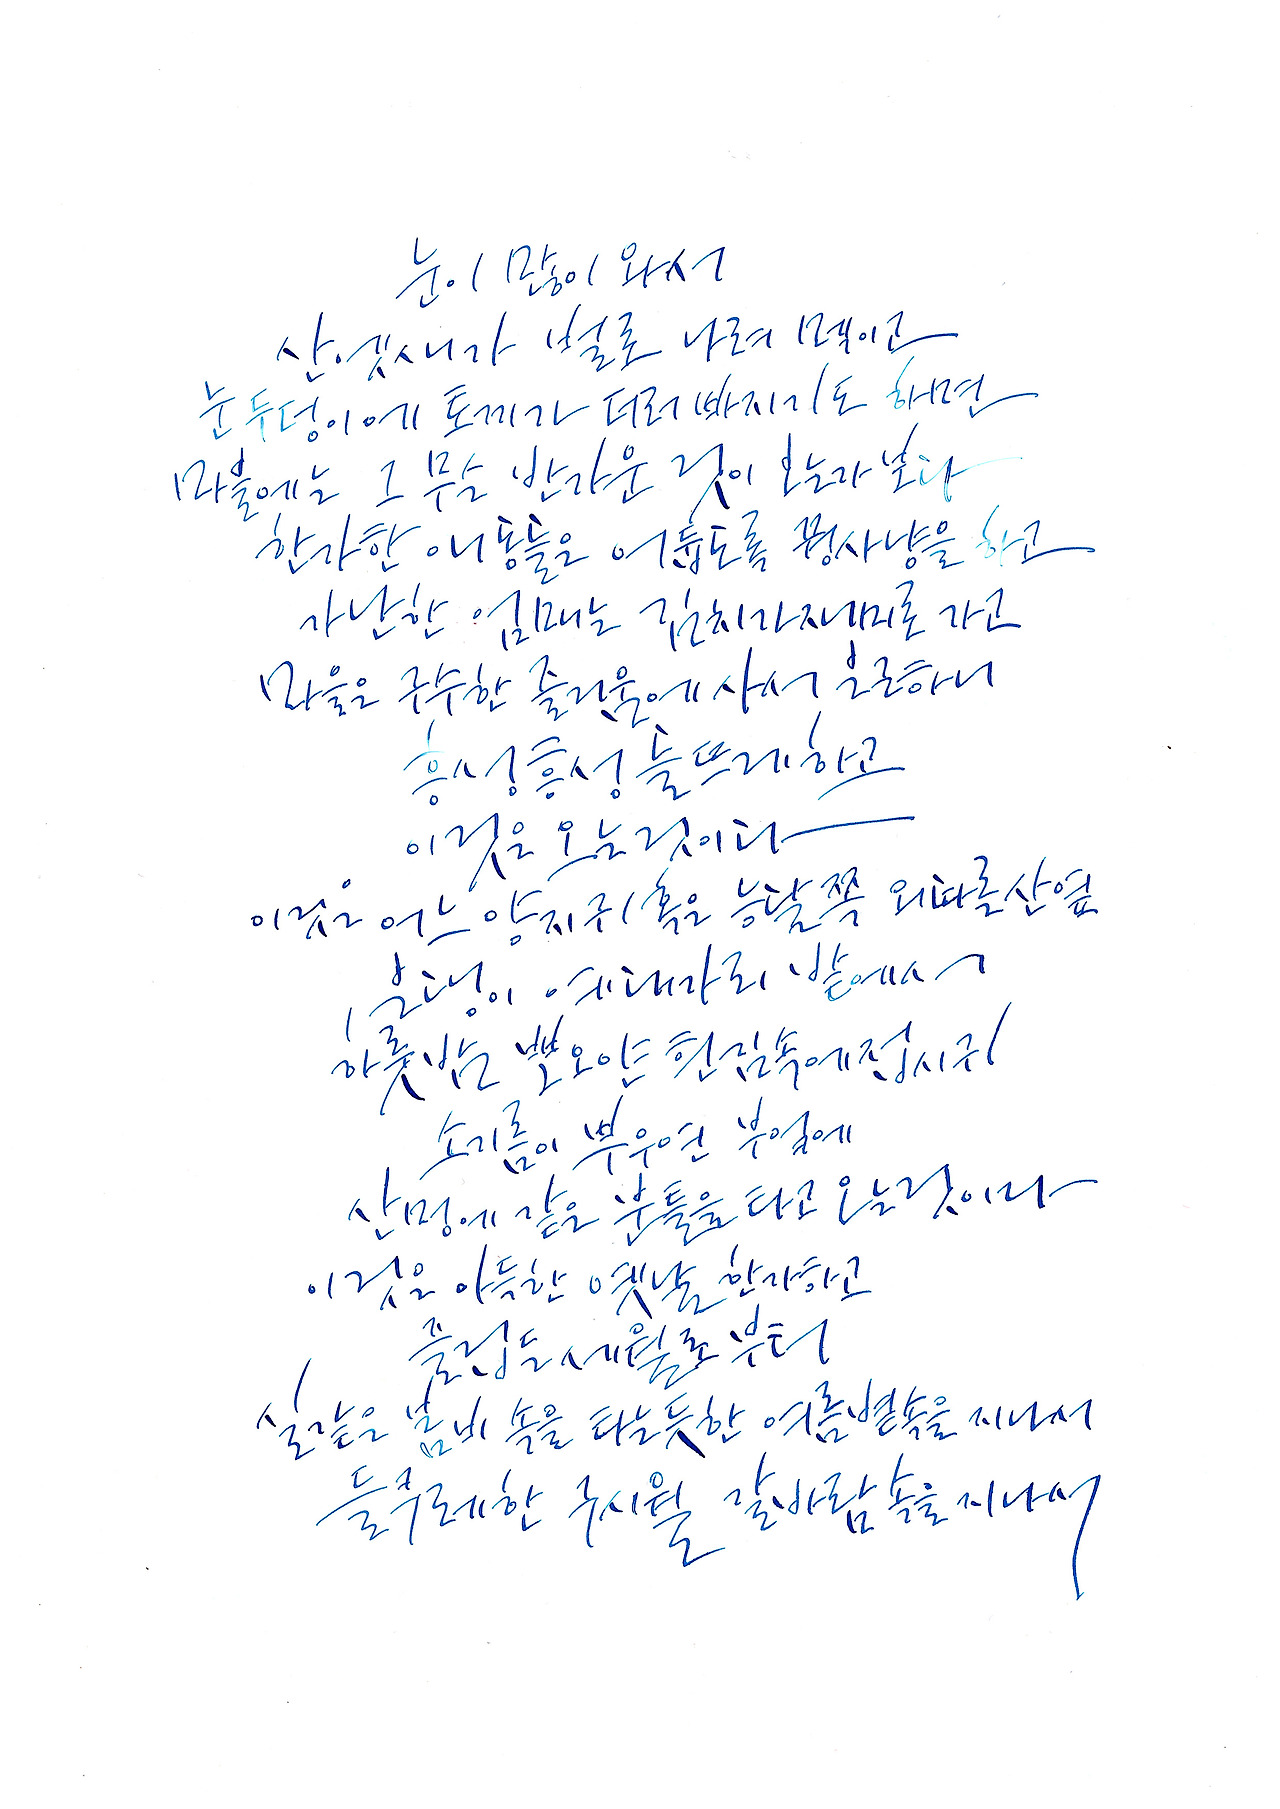 눈이 많이 와서
산엣새가 벌로 나려 멕이고
눈두덩이에 토끼가 더러 빠지기도 하면
마을에는 그 무슨 반가운 것이 오는가 보다
한가한 애동들은 어둡도록 꿩사냥을 하고
가난한 엄매는 김치가재미로 가고
마을은 구수한 즐거움에 사서 은근하니
흥성흥성 들뜨게 하고
이것은 오는 것이다
이것은 어느 양지귀 혹은 능달쪽 외따른 산 옆
은댕이 예데가리 밭에서
하룻밤 뽀오얀 흰 김 속에 접시귀
소기름이 뿌우연 부엌에
산멍에 같은 분틀을 타고 오는 것이다
이것은 아득한 옛날 한가하고
즐겁든 세월로 부터
실같은 봄비 속을 타는듯한 여름볕 속을 지나서
들쿠레한 구시월 갈바람 속을 지나서